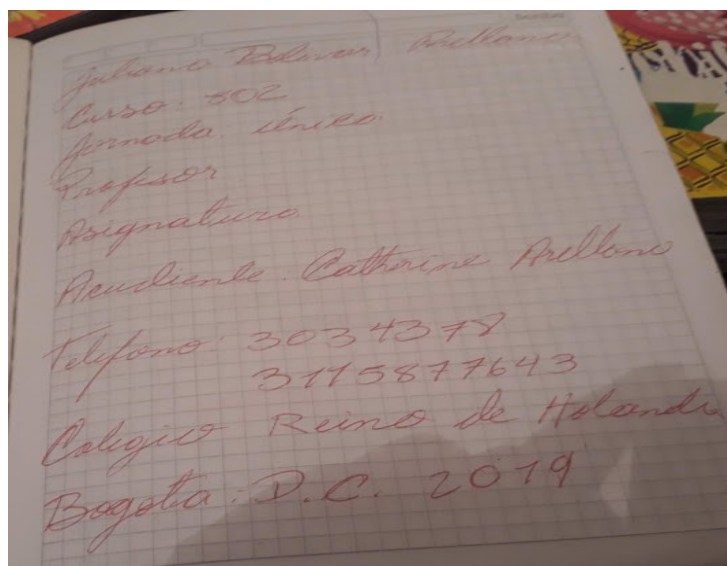 Juliana Bolivar Arellano
Curso: 302
Jornada: única
Profesor
Asignatura
Acudiente: Catherine Arellano
Telefono: 3034378
3115877643
Colegio Reino de Holanda
Bogota: D.C. 2019